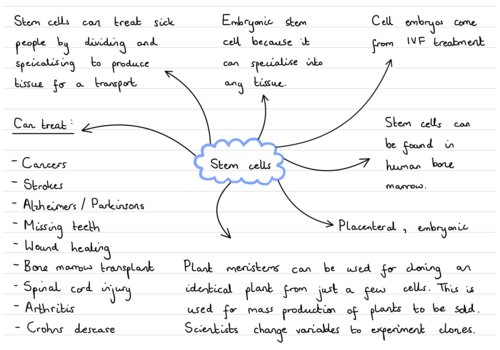 Stem cells can treat sick
people by dividing and
speicalising to produce
tissue for a transport
Embryonic stem
cell because it
can specialise into
any tissue.
Cell embryos come
from IVF treatment
Can treat:
- Cancers
- Strokes
- Alzheimers / Parkinsons
- Missing teeth
- Wound healing
- Bone marrow transplant
- Spinal cord injury
- Arthritis
- Crohns desease
Stem cells
Stem cells can
be found in
human bone
marrow.
Placenteral, embryonic
Plant meristems can be used for cloning an
identical plant from just a few cells. This is
used for mass production of plants to be sold.
Scientists change variables to experiment clones.